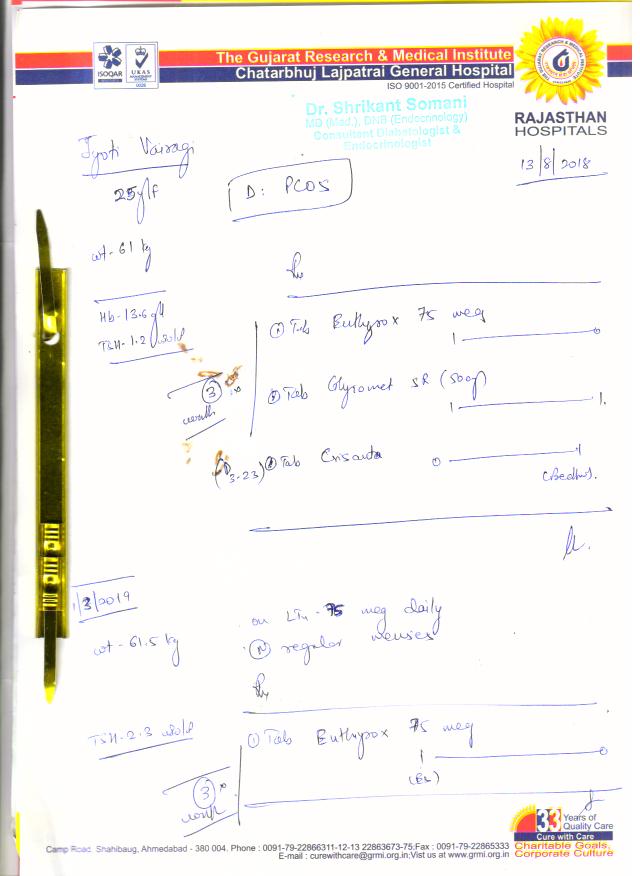 ISOQAR
UKAS
MANAGEMENT SYSTEMS
0026
The Gujarat Research & Medical Institute
Chatarbhuj Lajpatrai General Hospital
ISO 9001-2015 Certified Hospital
RAJASTHAN
HOSPITALS
Dr. Shrikant Somani
MD (Med.), DNB (Endocrinology)
Consultant Diabetologist &
Endocrinologist
Jyoti Vairagi
13/8/2018
25y/f
D: PCOS
wt - 61 kg
Hb - 13.6
TSH - 1.2
① Tab Euthyrox 75 mcg
1 0
3
month
② Tab Glyromet SR (500)
1 1
(D3-23) Tab Crisanta
0 1
(Bedtime).
1/3/2019
on LT4 - 75 mcg daily
wt - 61.5 kg
(N) regular menses
TSH - 2.3
① Tab Euthyrox 75 mcg
1 0
(ES)
3
month
33 Years of
Quality Care
Cure with Care
Camp Road. Shahibaug, Ahmedabad - 380 004. Phone : 0091-79-22866311-12-13 22863673-75,Fax : 0091-79-22865333
E-mail : curewithcare@grmi.org.in;Vist us at www.grmi.org.in
Charitable Goals,
Corporate Culture